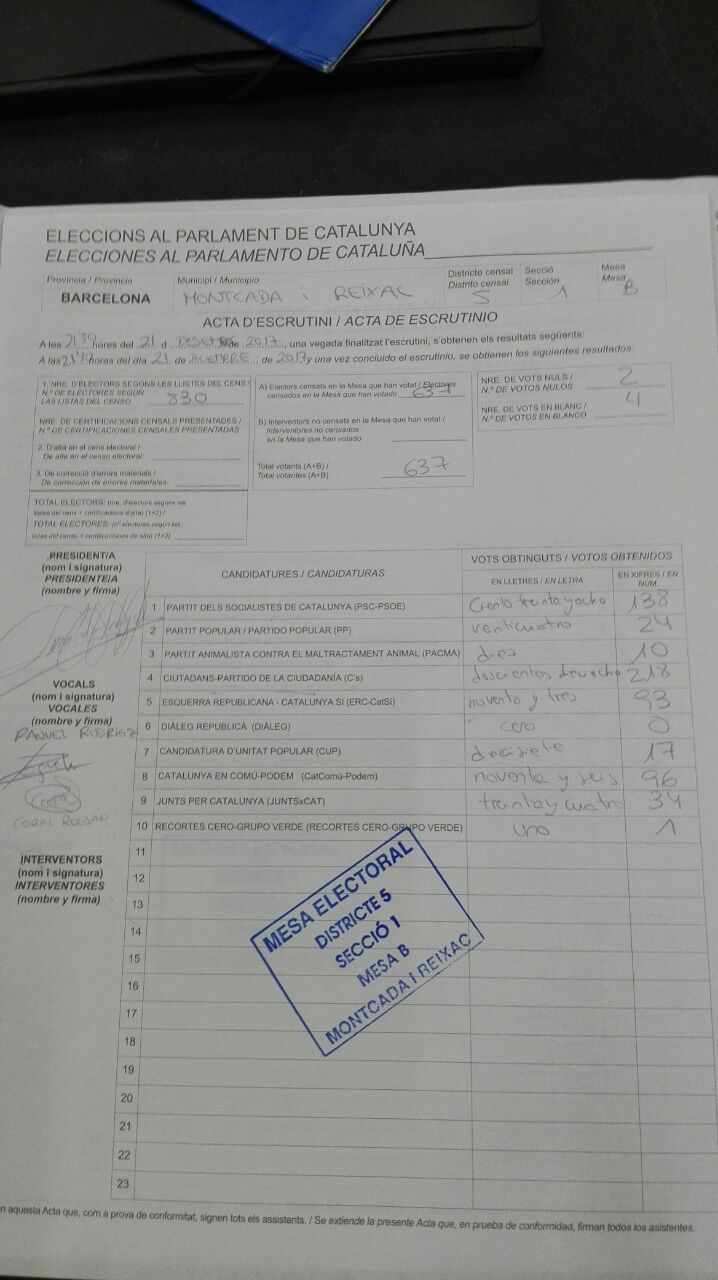 ELECCIONS AL PARLAMENT DE CATALUNYA
ELECCIONES AL PARLAMENTO DE CATALUÑA
Província / Provincia
BARCELONA
Municipi / Municipio
MONTCADA i REIXAC
Districte censal
Distrito censal
5
Secció
Sección
1
Mesa
Mesa
B
ACTA D'ESCRUTINI / ACTA DE ESCRUTINIO
A les 21'39 hores del 21 d de 2017, una vegada finalitzat l'escrutini, s'obtenen els resultats següents:
A las 21'39 horas del día 21 de DICIEMBRE de 2017 y una vez concluido el escrutinio, se obtienen los siguientes resultados:
1. NRE. D'ELECTORS SEGONS LES LLISTES DEL CENS /
N.º DE ELECTORES SEGÚN
LAS LISTAS DEL CENSO 830
NRE. DE CERTIFICACIONS CENSALS PRESENTADES /
N.º DE CERTIFICACIONES CENSALES PRESENTADAS
2. D'alta en el cens electoral /
De alta en el censo electoral:
3. De correcció d'errors materials /
De corrección de errores materiales:
TOTAL ELECTORS: (nre. d'electors segons les
llistes del cens + certificacions d'alta) (1+2) /
TOTAL ELECTORES: (nº electores según las
listas del censo + certificaciones de alta) (1+2)
A) Electors censats en la Mesa que han votat / Electores
censados en la Mesa que han votado 637
B) Interventors no censats en la Mesa que han votat /
Interventores no censados
en la Mesa que han votado
Total votants (A+B) /
Total votantes (A+B) 637
NRE. DE VOTS NULS /
N.º DE VOTOS NULOS 2
NRE. DE VOTS EN BLANC /
N.º DE VOTOS EN BLANCO 4
PRESIDENT/A
(nom i signatura)
PRESIDENTE/A
(nombre y firma)
VOCALS
(nom i signatura)
VOCALES
(nombre y firma)
RAQUEL
CORAL ROLDAN
INTERVENTORS
(nom i signatura)
INTERVENTORES
(nombre y firma)
CANDIDATURES / CANDIDATURAS
VOTS OBTINGUTS / VOTOS OBTENIDOS
EN LLETRES / EN LETRA
EN XIFRES / EN
NUM.
1 PARTIT DELS SOCIALISTES DE CATALUNYA (PSC-PSOE) Ciento treinta y ocho 138
2 PARTIT POPULAR / PARTIDO POPULAR (PP) venticuatro 24
3 PARTIT ANIMALISTA CONTRA EL MALTRACTAMENT ANIMAL (PACMA) diez 10
4 CIUTADANS-PARTIDO DE LA CIUDADANÍA (C's) doscientos 218
5 ESQUERRA REPUBLICANA - CATALUNYA SÍ (ERC-CatSí) noventa y tres 93
6 DIÀLEG REPUBLICÀ (DIÀLEG) cero 0
7 CANDIDATURA D'UNITAT POPULAR (CUP) 17
8 CATALUNYA EN COMÚ-PODEM (CatComú-Podem) noventa y seis 96
9 JUNTS PER CATALUNYA (JUNTSxCAT) treinta y cuatro 34
10 RECORTES CERO-GRUPO VERDE (RECORTES CERO-GRUPO VERDE) uno 1
11
12
13
14
15
16
17
18
19
20
21
22
23
MESA ELECTORAL
DISTRICTE 5
SECCIÓ 1
MESA B
MONTCADA I REIXAC
n aquesta Acta que, com a prova de conformitat, signen tots els assistents. / Se extiende la presente Acta que, en prueba de conformidad, firman todos los asistentes.